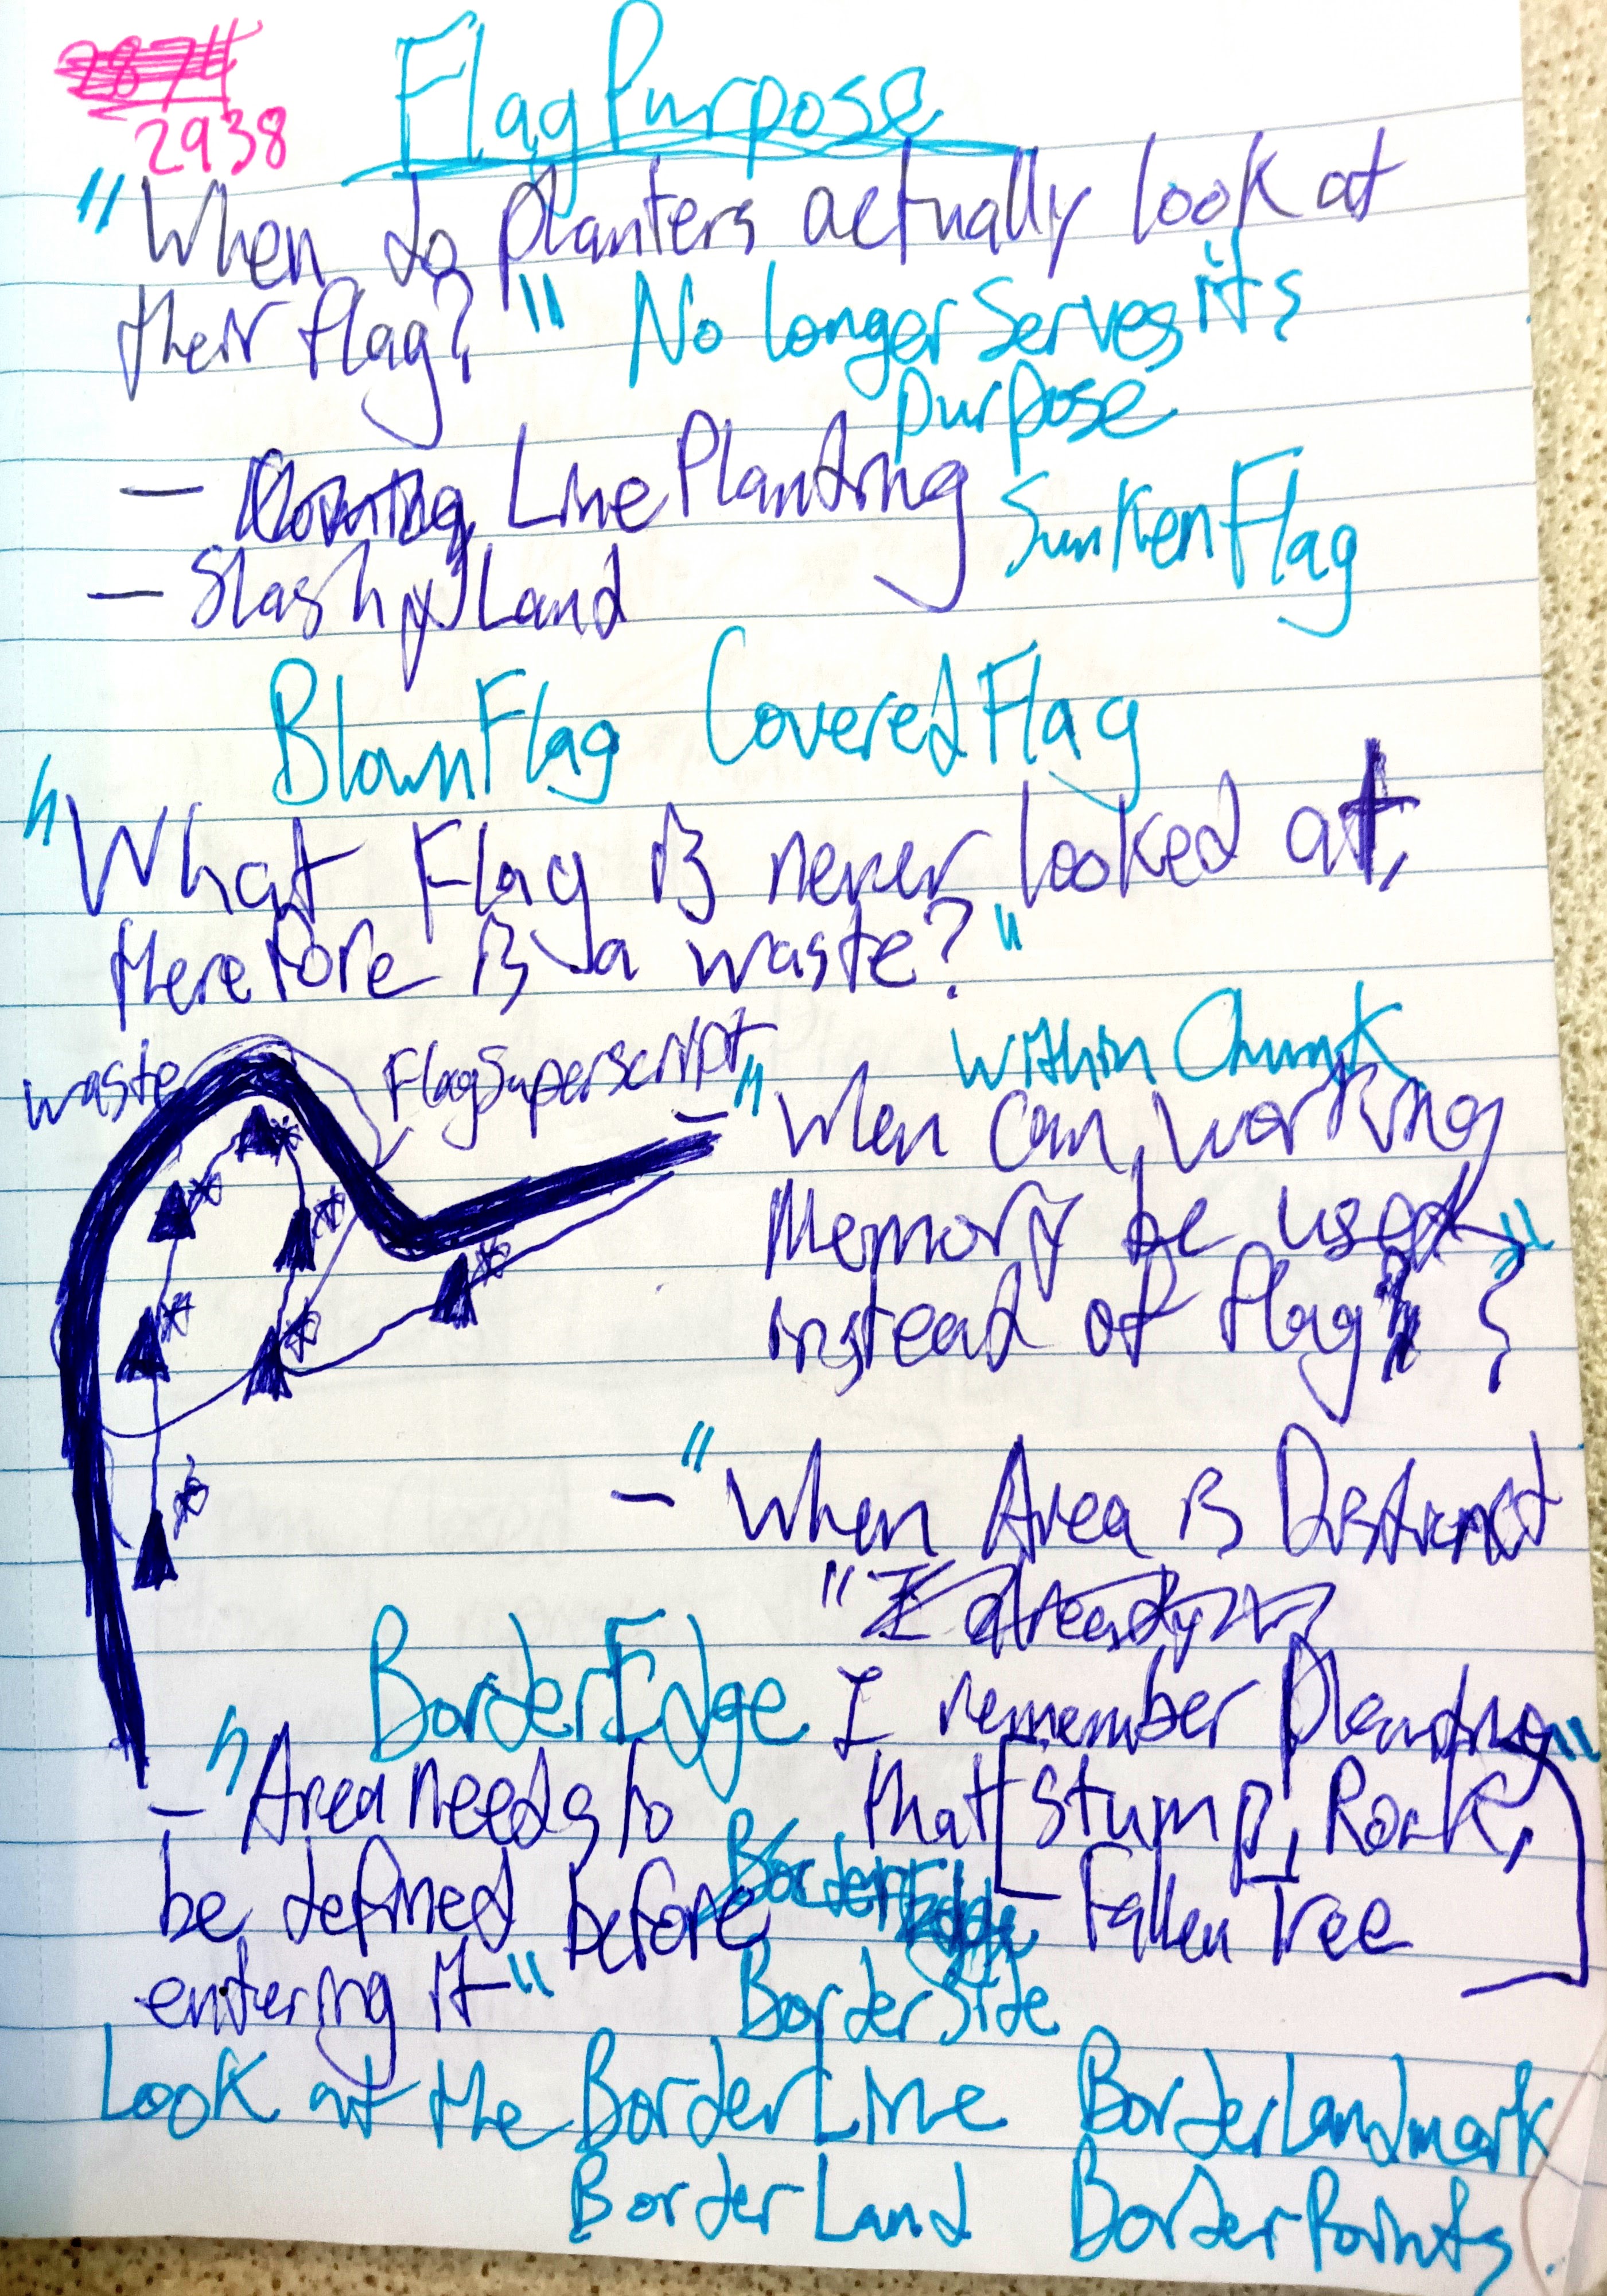 2874
2938
FlagPurpose
"When do planters actually look at
their flag?" No longer serves its
purpose
- LinePlanting
SunkenFlag
- Slashy Land
BlownFlag CoveredFlag
"What Flag is never looked at,
therefore is a waste?"
waste
FlagSuperscript
Within Chunk
- "When can working
Memory be used
instead of flag?"
- "When Area is Distinct
"I already
BorderEdge
I remember Planting"
that [Stump, Rock,
Fallen Tree]
- "Area needs to
be defined before
entering it"
BorderEdge
BorderSide
Look at the BorderLine BorderLandmark
BorderLand BorderPoints